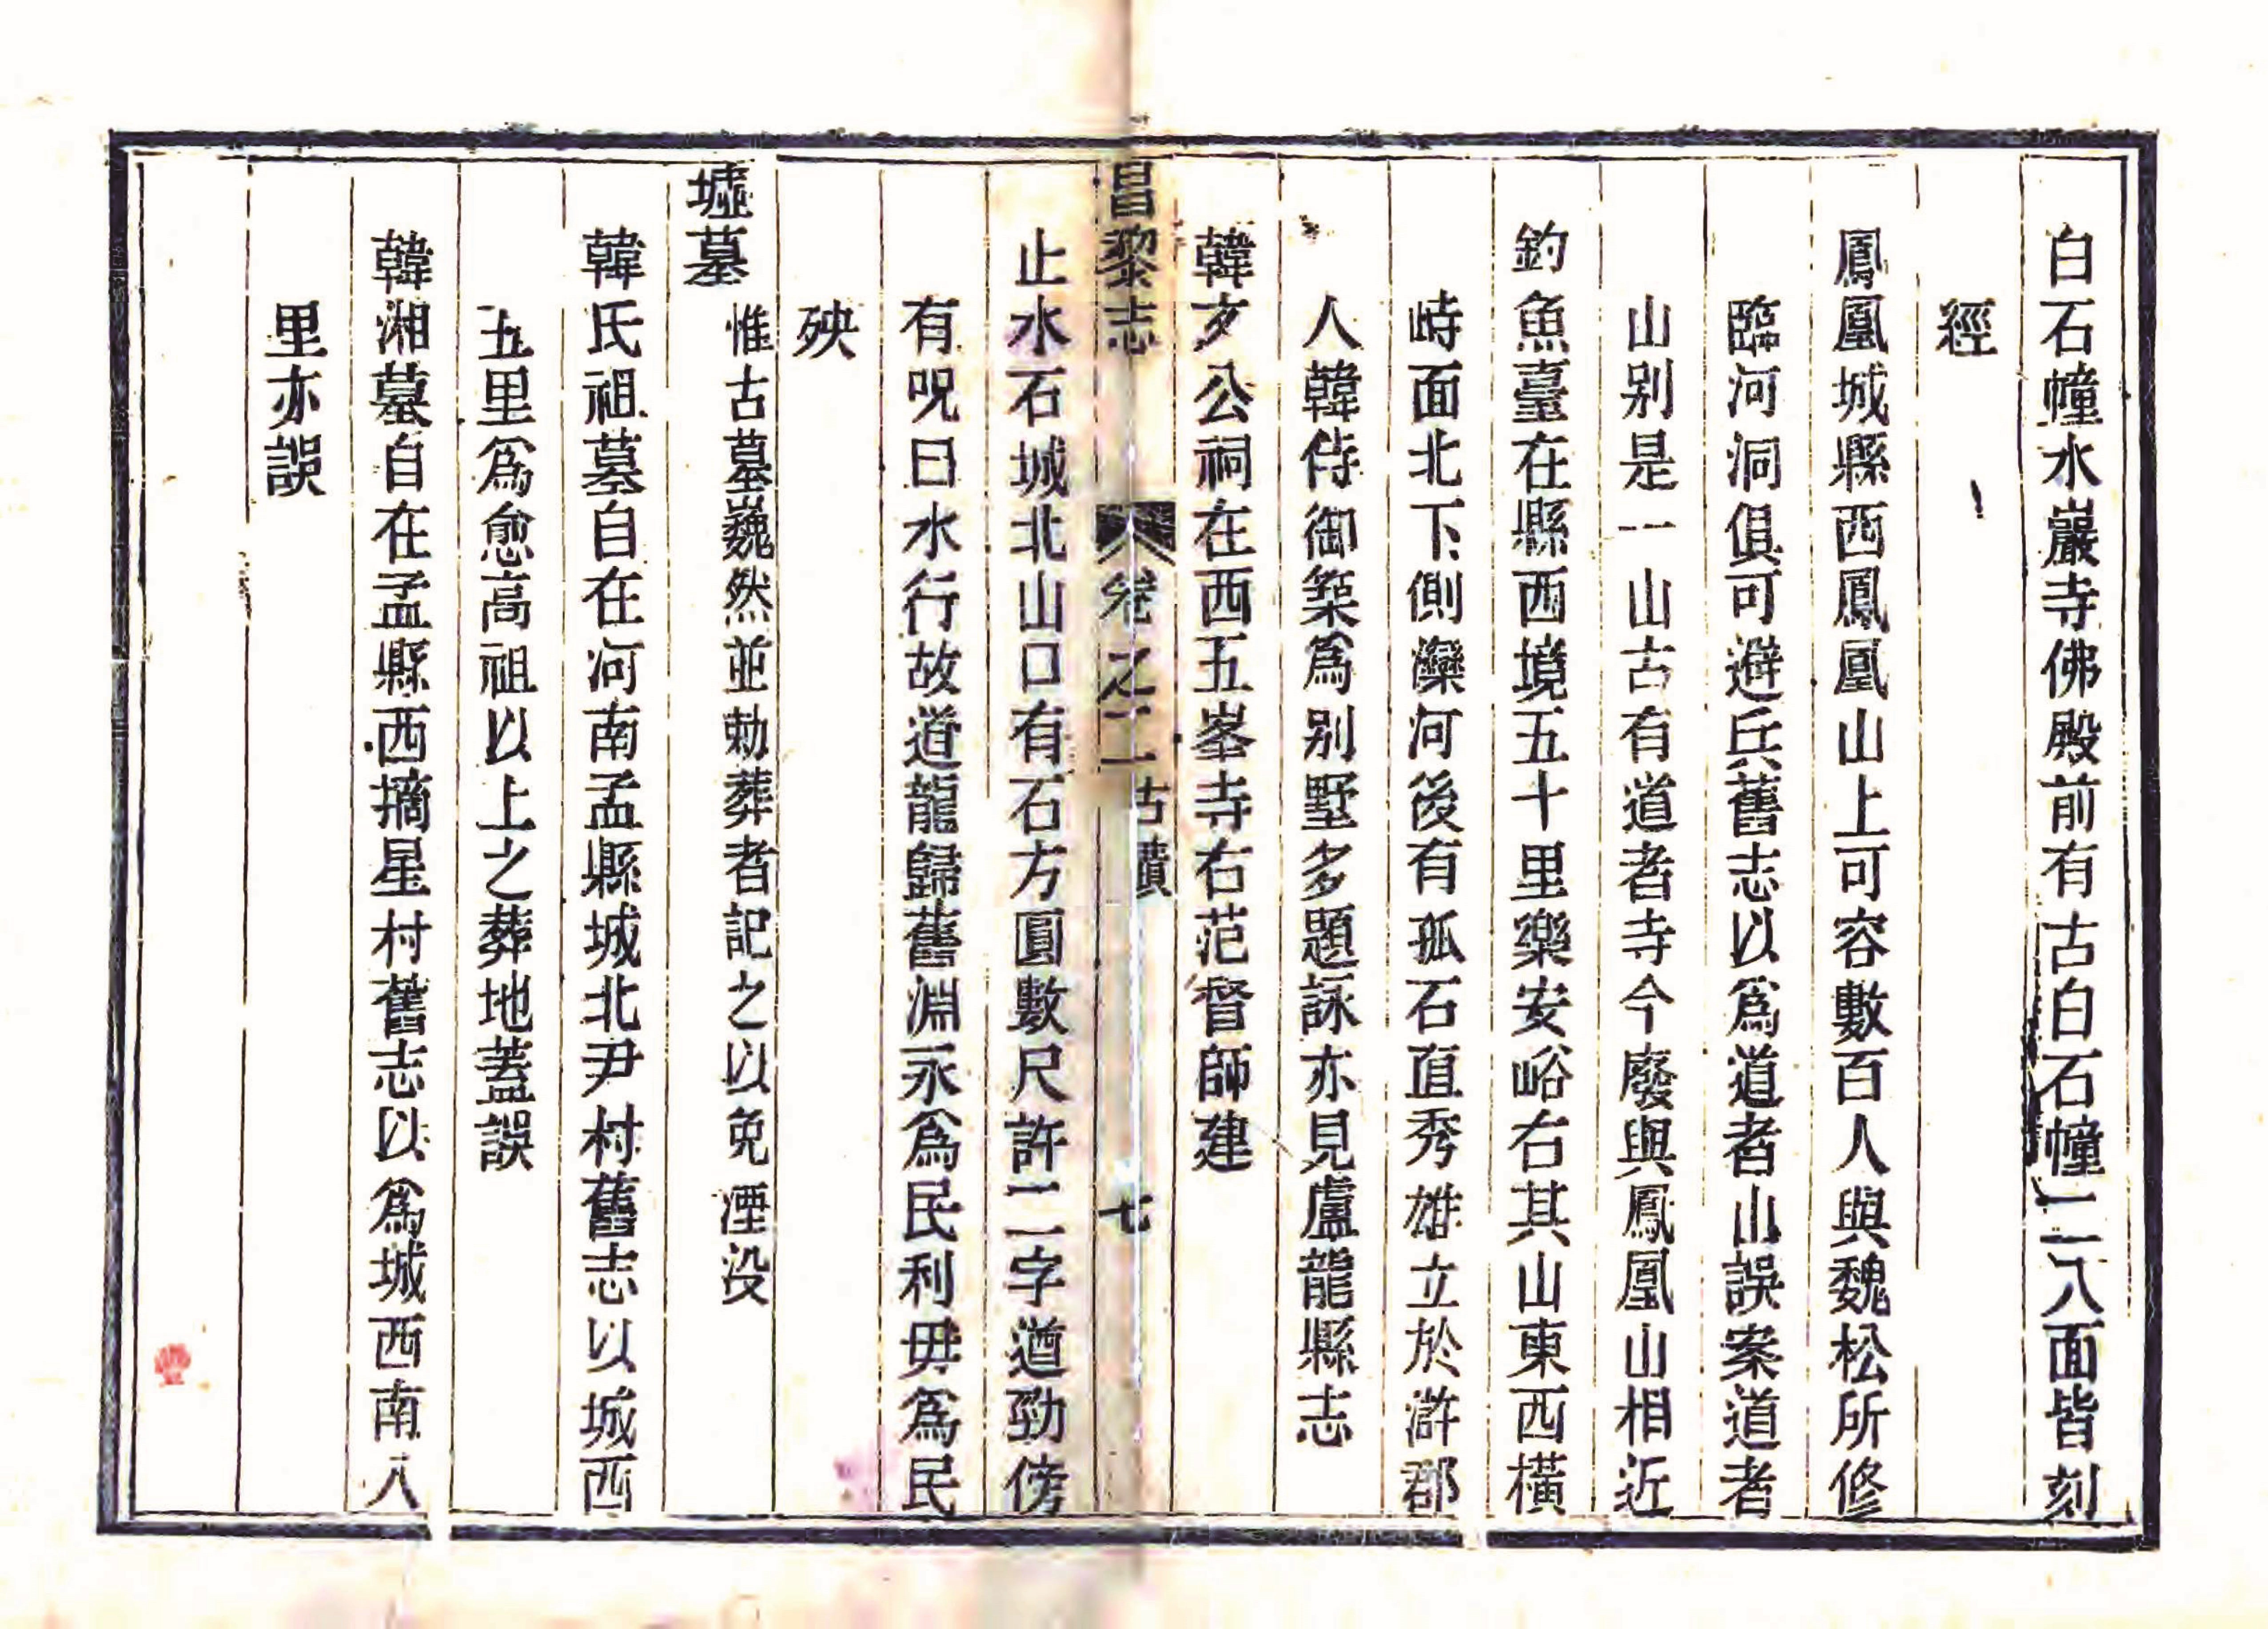 白石幢水巖寺佛殿前有古白石幢二八面皆刻
經
鳳凰城縣西鳳凰山上可容數百人與魏松所修
臨河洞俱可避兵舊志以爲道者山誤案道者
山别是一山古有道者寺今廢與鳳凰山相近
釣魚臺在縣西境五十里樂安峪右其山東西橫
峙面北下側灤河後有孤石直秀雄立於滸郡
人韓侍御築爲别墅多題詠亦見盧龍縣志
韓文公祠在西五峯寺右范督師建
昌黎志 卷之二 古蹟 七
止水石城北山口有石方圓數尺許二字遒勁傍
有呪曰水行故道龍歸舊淵永爲民利毋爲民
殃
墟墓 惟古墓巍然並勅葬者記之以免湮没
韓氏祖墓自在河南孟縣城北尹村舊志以城西
五里爲愈高祖以上之葬地蓋誤
韓湘墓自在孟縣西摘星村舊志以爲城西南八
里亦誤